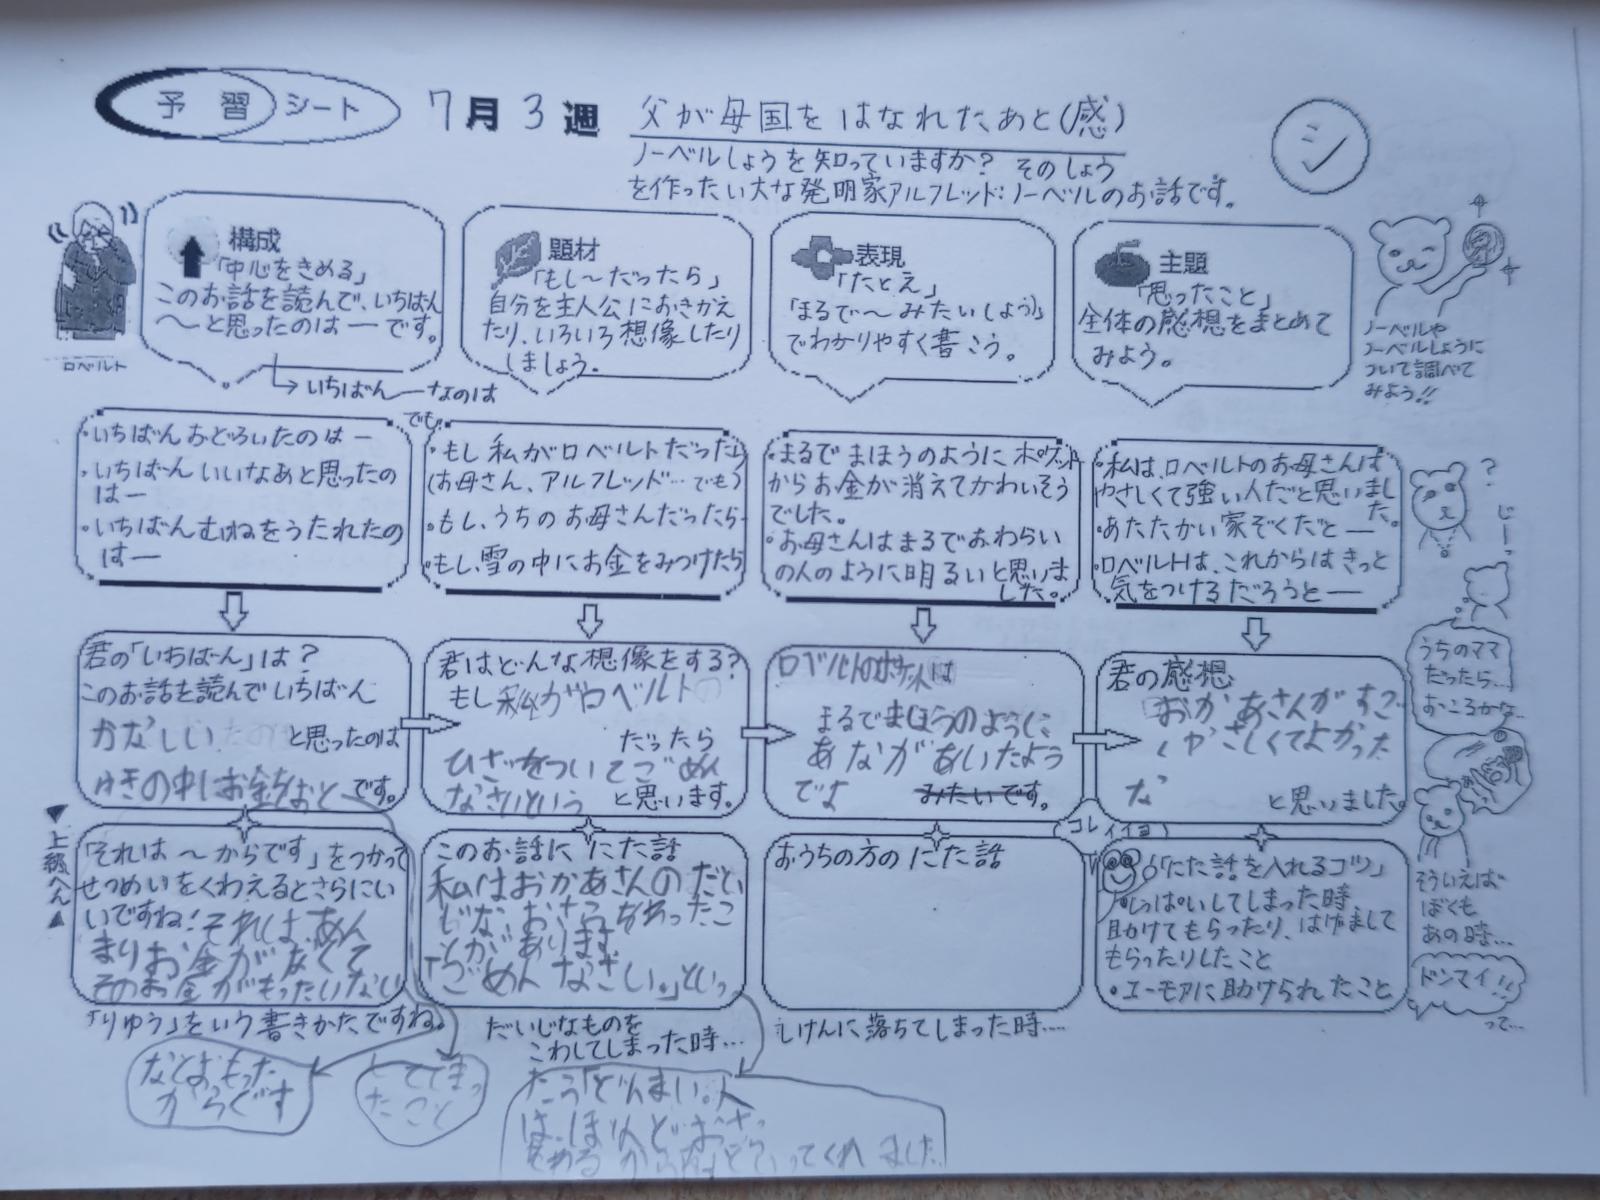 予習シート 7月3週 父が母国をはなれたあと(感)
シ
ノーベルしょうを知っていますか？そのしょう
を作ったい大な発明家アルフレッド:ノーベルのお話です。
ロベルト
構成
「中心をきめる」
このお話を読んで、いちばん
〜と思ったのは―です。
→いちばん―なのは
題材
「もし〜だったら」
自分を主人公におきかえ
たり、いろいろ想像したり
しましょう。
表現
「たとえ」
「まるで〜みたい(しょう)」
でわかりやすく書こう。
主題
「思ったこと」
全体の感想をまとめて
みよう。
ノーベルや
ノーベルしょうに
ついて調べて
みよう!!
・いちばんおどろいたのは―
・いちばんいいなあと思ったの
は―
・いちばんむねをうたれたの
は―
でも
・もし私がロベルトだったら
(お母さん、アルフレッド…でも)
・もし、うちのお母さんだったら―
・もし、雪の中にお金をみつけたら
・まるでまほうのようにポケット
からお金が消えてかわいそう
でした。
・お母さんはまるでおわらい
の人のように明るいと思いま
した。
・私は、ロベルトのお母さんは
やさしくて強い人だと思いまし
た。
・あたたかい家ぞくだと―
・ロベルトは、これからはきっと
気をつけるだろうと―
？
じーっ
うちのママ
だったら…
おころかな…
君の「いちばん」は？
このお話を読んでいちばん
かなしい と思ったのは
ゆきの中にお金をおと です。
君はどんな想像をする？
もし私がロベルト
だったら
ひざをついてごめん
なさいという と思います。
ロベルトのポケットは
まるでまほうのように
あながあいたよう
でよ みたいです。
君の感想
おかあさんがすご
くやさしくてよかった
な と思いました。
▼上級へん▲
「それは〜からです」をつかって
せつめいをくわえるとさらにい
いですね！それはあん
まりお金がなくて
そのお金がもったいない
「りゆう」をいう書きかたですね。
なとおもった
からです
してしまっ
たこと
このお話ににた話
私はおかあさんのだい
じなおさらをわったこ
とがあります
「ごめんなさい。」といっ
だいじなものを
こわしてしまった時…
たら「どんまい。人
おうちの方のにた話
しけんに落ちてしまった時…
コレイイヨ
「にた話を入れるコツ」
・しっぱいしてしまった時
助けてもらったり、はげまして
もらったりしたこと
・ユーモアに助けられたこと
そういえば
ぼくも
あの時…
ドンマイ!!
って…